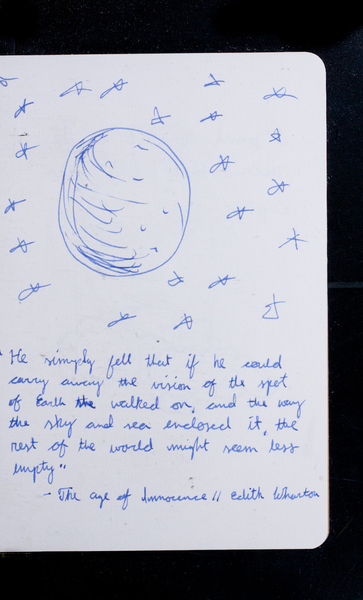 "He simply felt that if he could
carry away the vision of the spot
of Earth the walked on, and the way
the sky and sea enclosed it, the
rest of the world might seem less
empty"
- The age of Innocence // Edith Wharton